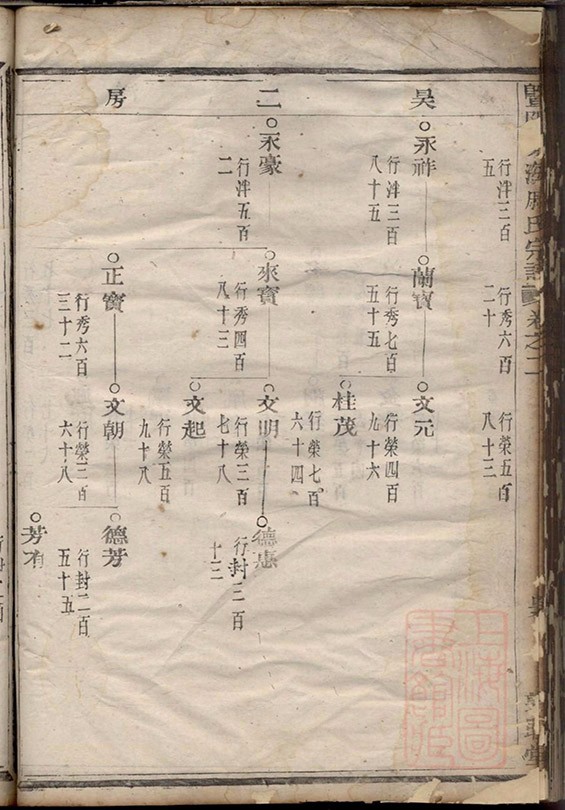 昊
二
房
行泮三百
五
行秀六百
二十
行榮五百
八十三
永祚
行泮三百
八十五
蘭寶
行秀七百
五十五
文元
行榮四百
九十六
桂茂
行榮七百
六十四
永豪
行泮五百
二
來寳
行秀四百
八十三
文明
行榮三百
七十八
德惠
行封三百
十三
文起
行榮五百
九十八
正寳
行秀六百
三十二
文朝
行榮三百
六十八
德芳
行封二百
五十五
芳
氏宗譜
卷之二
上海圖
書館藏